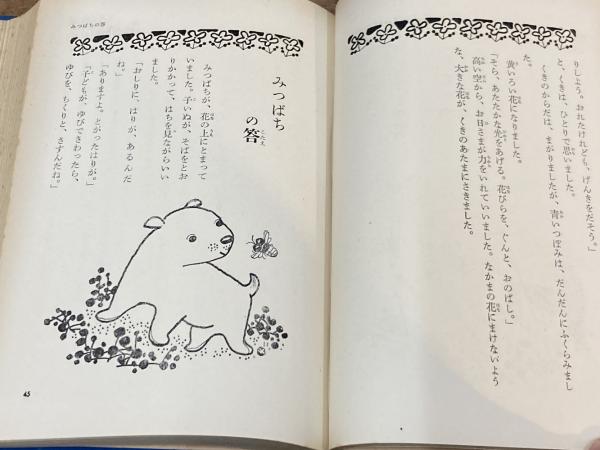 りしよう。おれたけれども、げんきをだそう。」
と、くきは、ひとりで思いました。
くきのからだは、まがりましたが、青いつぼみは、だんだんにふくらみまし
た。
黄いろい花になりました。
「そら、あたたかな光をあげる。花びらを、ぐんと、おのばし。」
高い空から、お日さまが力をいれていいました。なかまの花にまけないよう
な、大きな花が、くきのあたまにさきました。
みつばちの答
みつばち
の答
こたえ
みつばちが、花の上にとまって
いました。子いぬが、そばをとお
りかかって、はちを見ながらいい
ました。
「おしりに、はりが、あるんだ
ね。」
「ありますよ。とがったはりが。」
「子どもが、ゆびでさわったら、
ゆびを、ちくりと、さすんだね。」
45